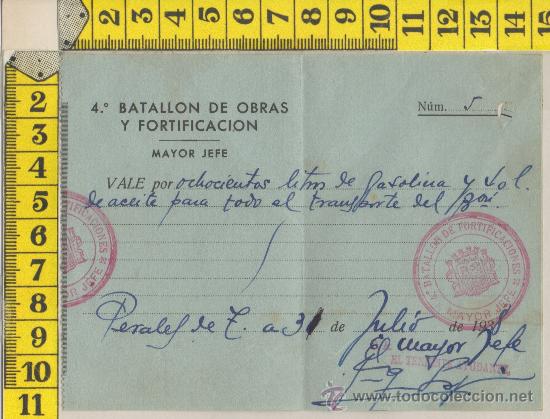 1 2 3 4 5 6 7 8 9 10 11 12 13 14 15
2
3
4
5
6
7
8
9
10
11
4.º BATALLON DE OBRAS
Y FORTIFICACION
MAYOR JEFE
Núm. 5
VALE por ochocientos litros de gasolina y 40 l.
de aceite para todo el transporte del Bon.
FORTIFICACIONES
MAYOR JEFE
4.º BATALLON DE FORTIFICACIONES
MAYOR JEFE
Perales de T. a 31 de Julio de 193
El mayor Jefe
EL TENIENTE AYUDANTE
todocoleccion.net